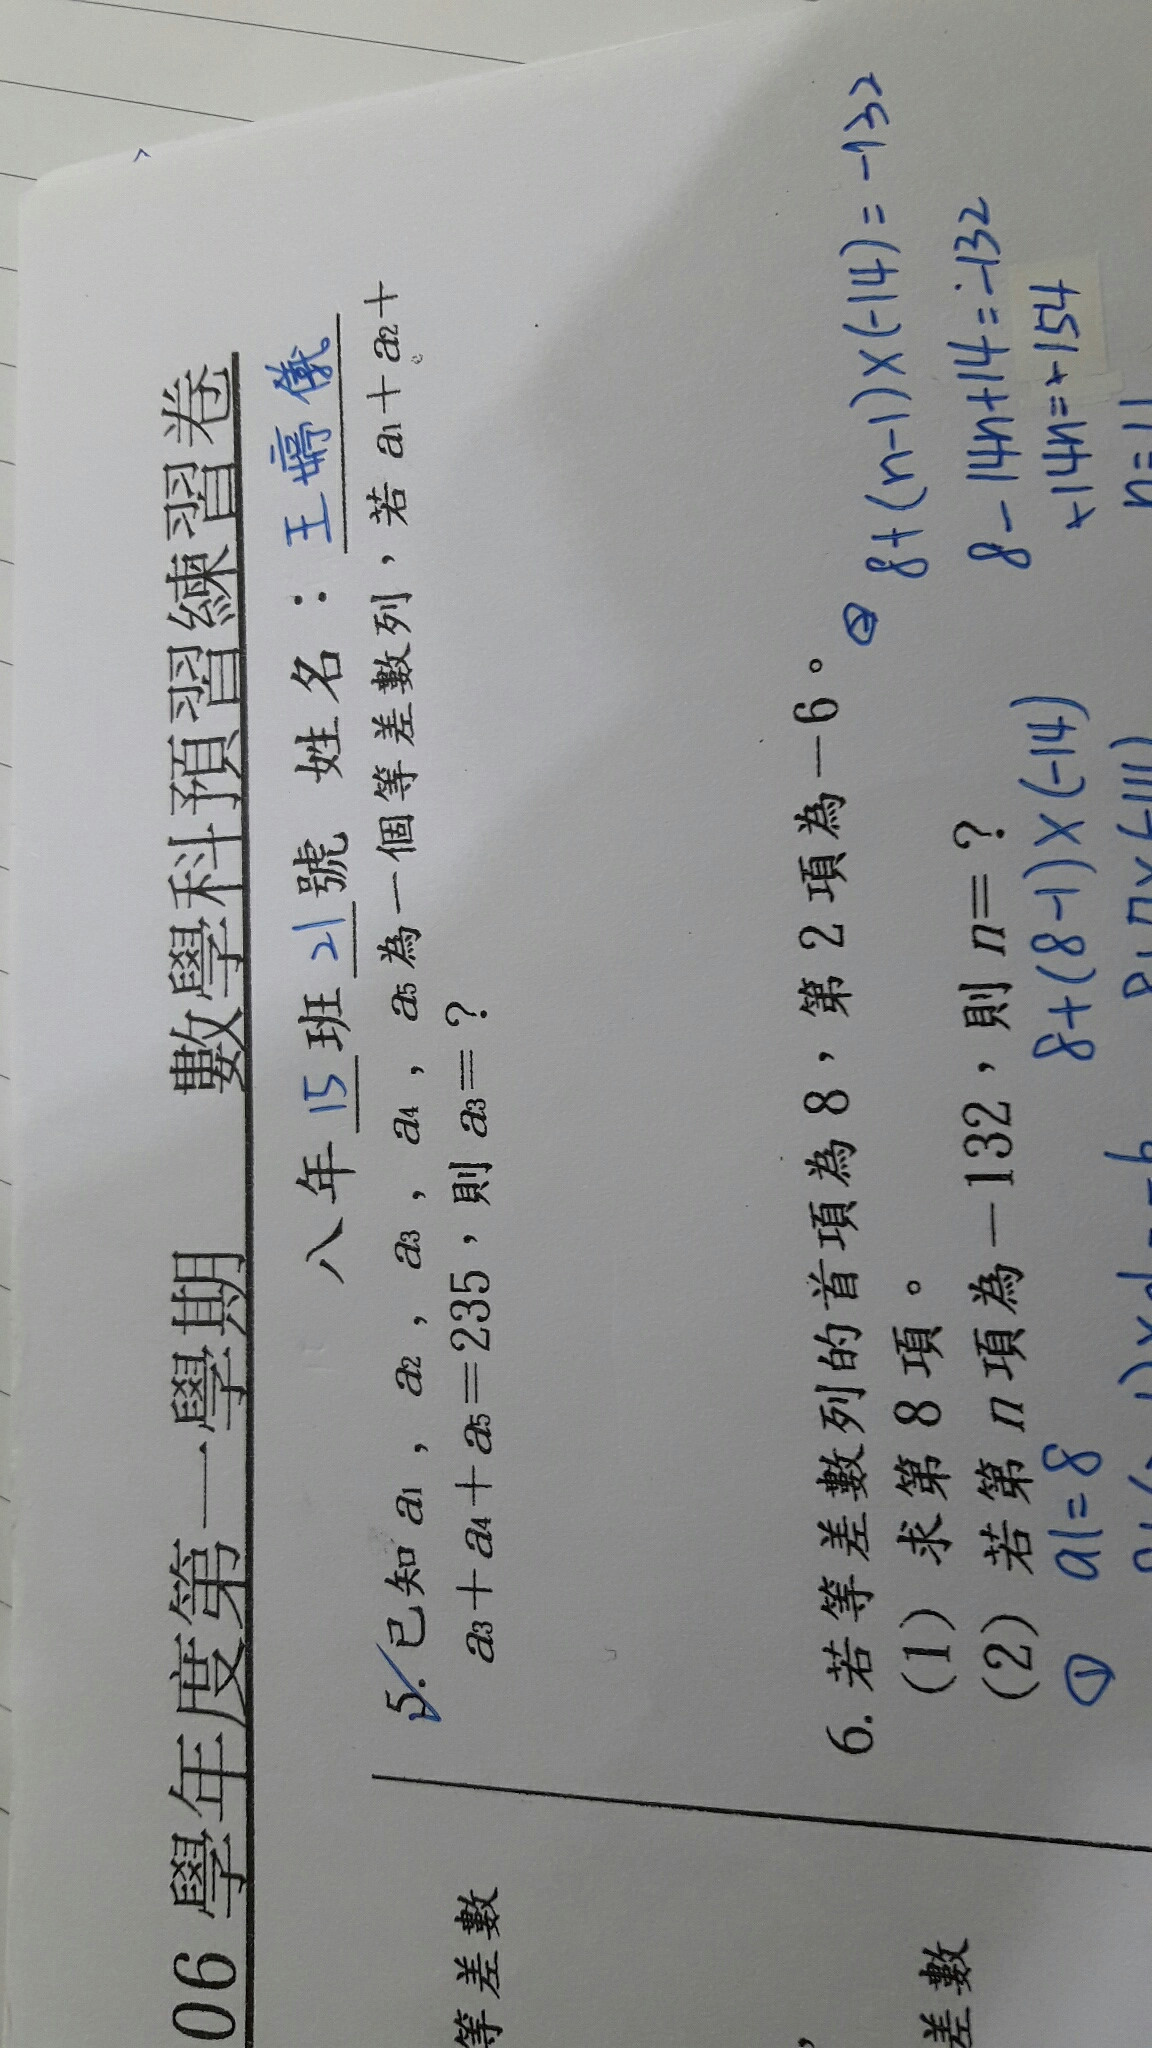 06 學年度第一學期 數學科預習練習卷
八年 15 班 21 號 姓名：王嫮儀
等差數
，
差數
5. 已知 a1，a2，a3，a4，a5 為一個等差數列，若 a1＋a2＋
a3＋a4＋a5＝235，則 a3＝？
6. 若等差數列的首項為 8，第 2 項為－6。
(1) 求第 8 項。
(2) 若第 n 項為－132，則 n＝？
① a1=8
8+(8-1)×(-14)
② 8+(n-1)×(-14)=-132
8-14n+14=-132
+14n=+154
n=11